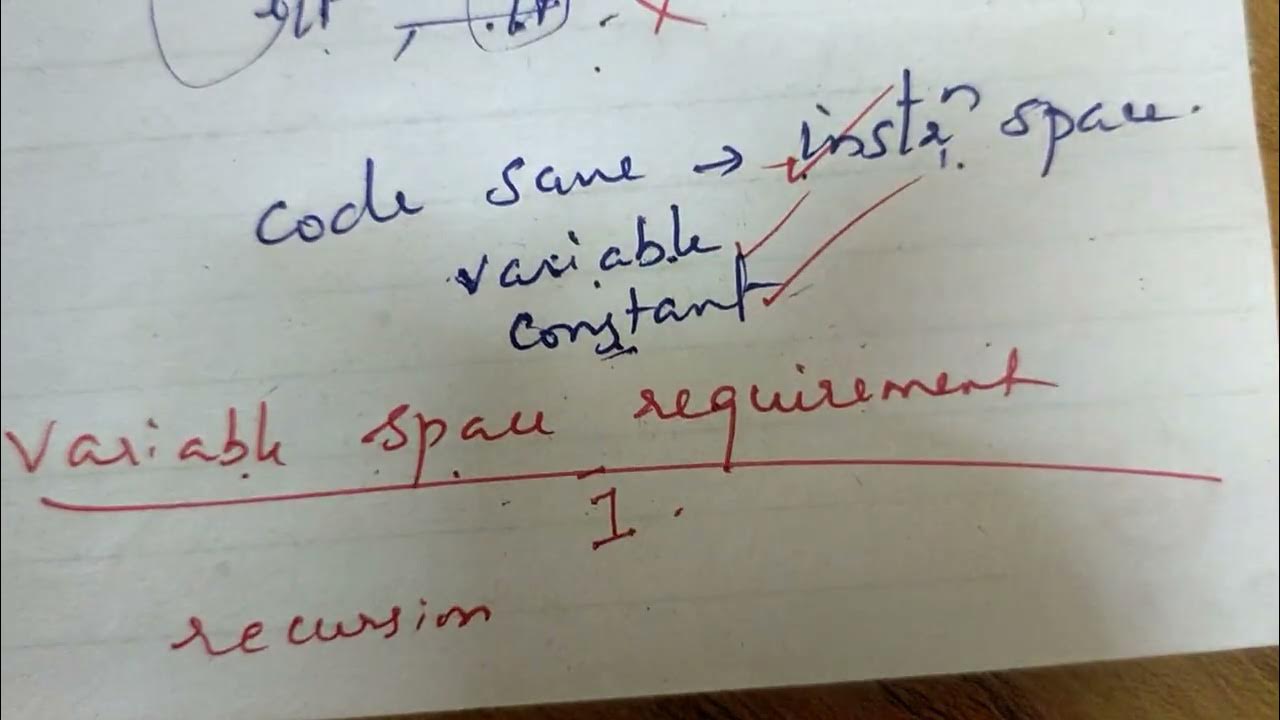 code save → instrⁿ space.
variable
constant
Variable space requirement
1.
recursion